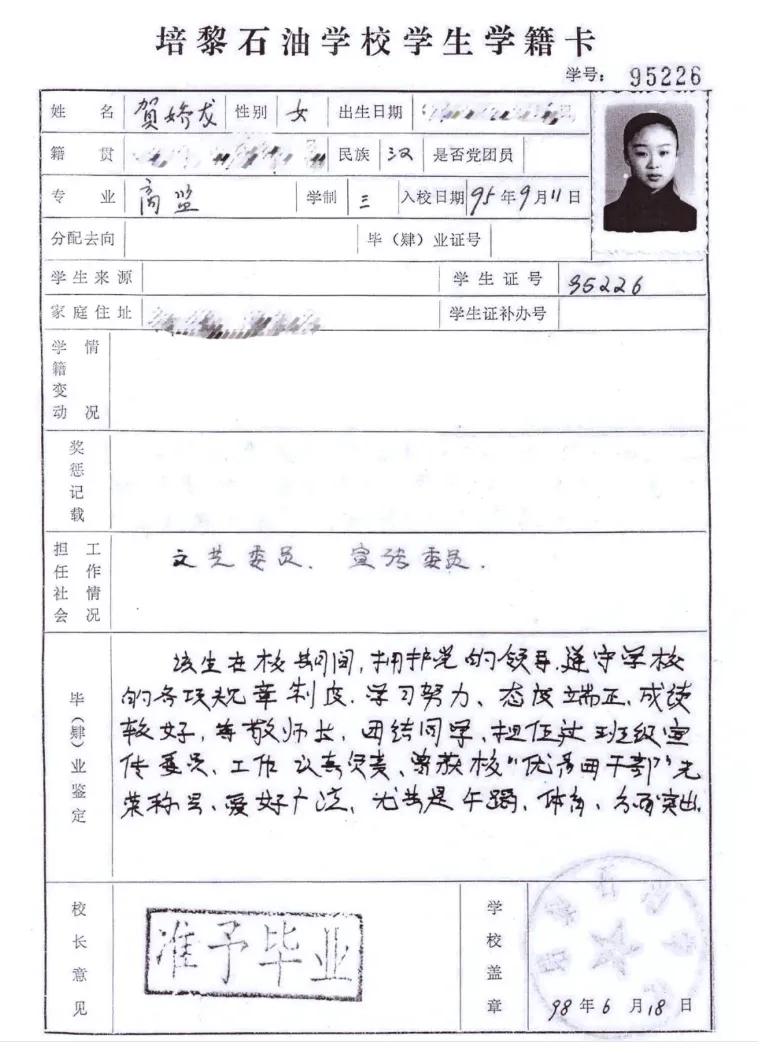 培黎石油学校学生学籍卡
学号: 95226
姓名 賀娇龙 性别 女 出生日期
籍贯 民族 汉 是否党团员
专业 商监 学制 三 入校日期 95年9月11日
分配去向 毕(肄)业证号
学生来源 学生证号 95226
家庭住址 学生证补办号
学籍变动情况
奖惩记载
担任社会工作情况 文艺委员、宣传委员.
毕(肄)业鉴定
该生在校期间,拥护党的领导.遵守学校
的各项规章制度.学习努力、态度端正.成绩
较好,尊敬师长,团结同学、担任过班级宣
传委员、工作认真负责、曾获校"优秀团干部"光
荣称号、爱好广泛,尤其是午蹈、体育、方面突出.
校长意见 准予毕业 学校盖章
98年6月18日